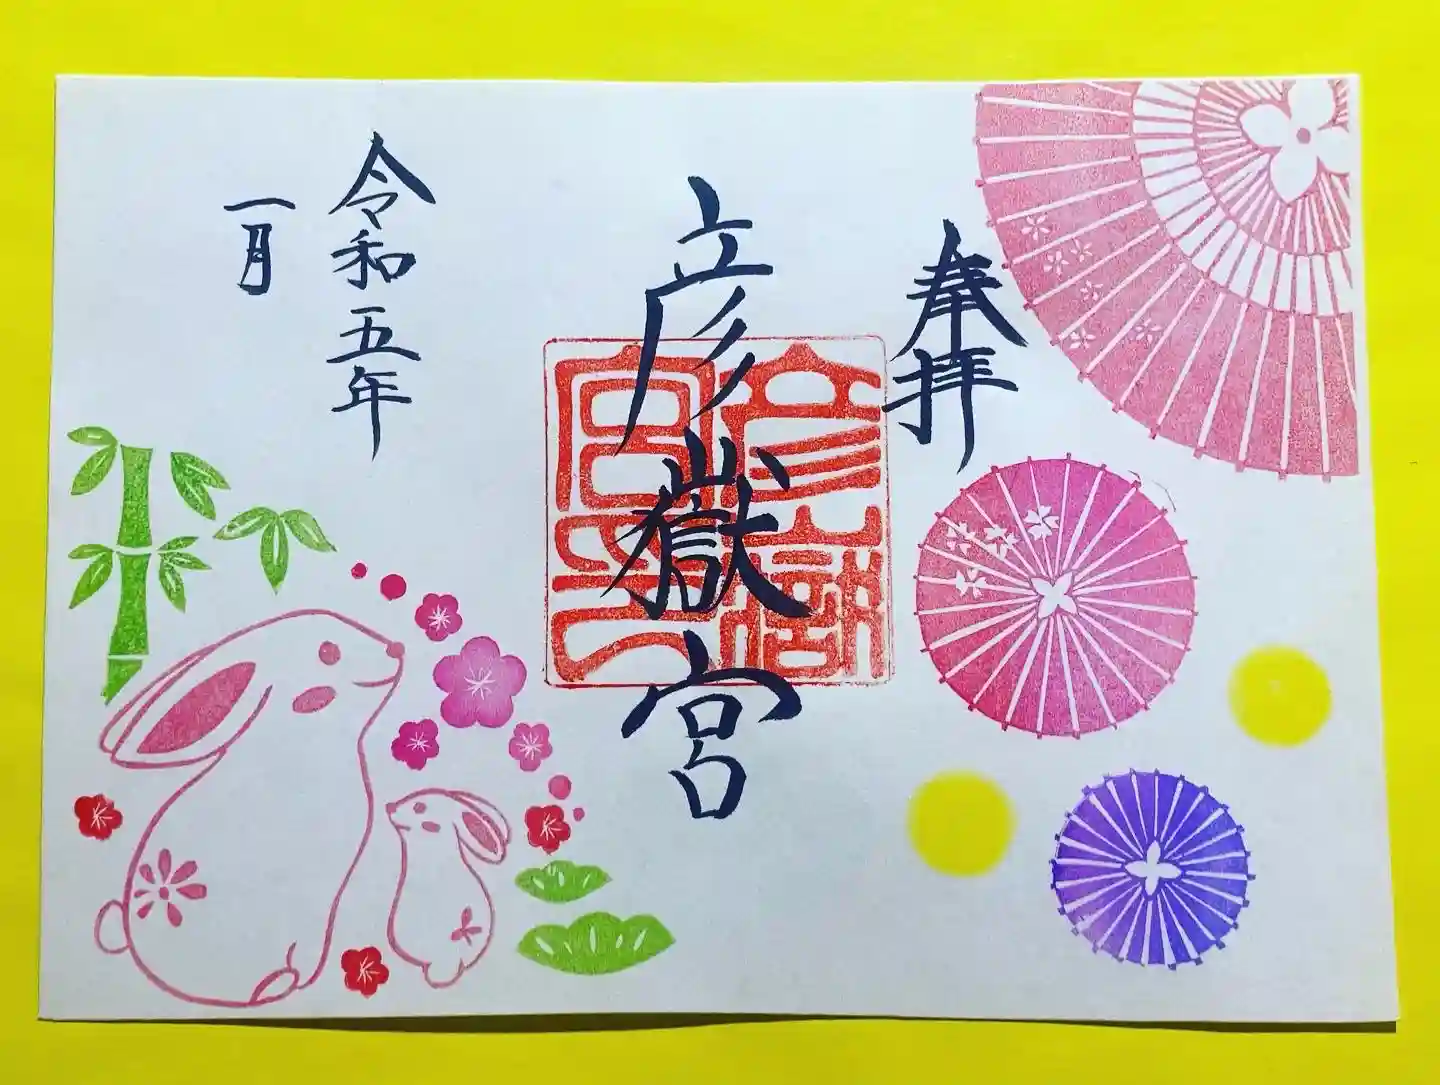 奉拝
彦嶽宮
彦嶽宮印
令和五年
一月